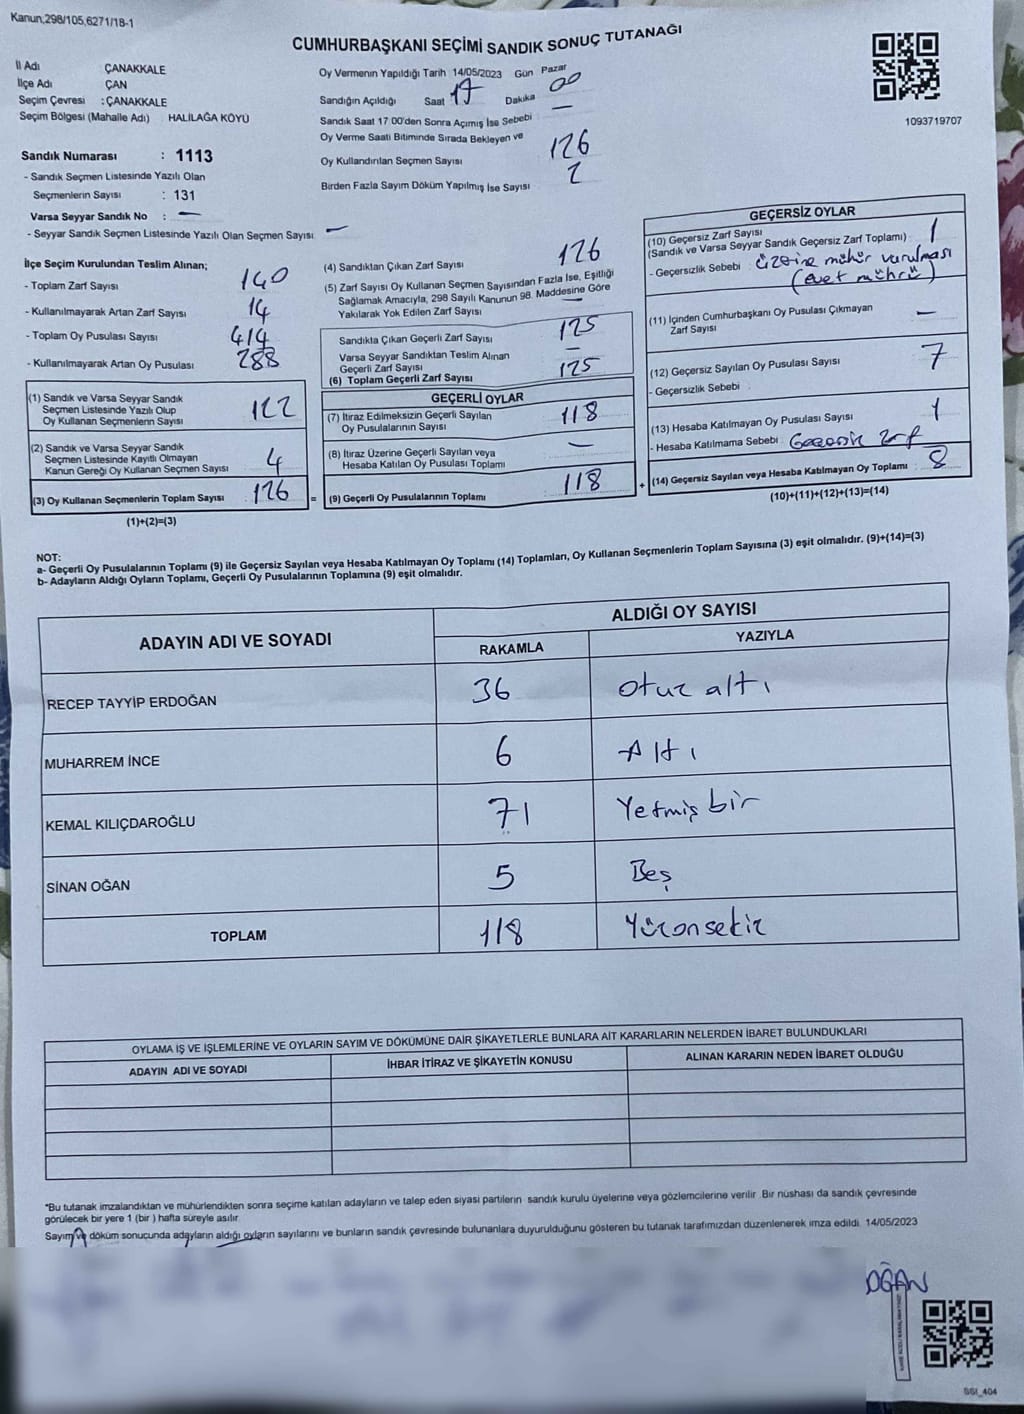 Kanun;298/105,6271/18-1
CUMHURBAŞKANI SEÇİMİ SANDIK SONUÇ TUTANAĞI
İl Adı ÇANAKKALE
İlçe Adı ÇAN
Seçim Çevresi : ÇANAKKALE
Seçim Bölgesi (Mahalle Adı) HALİLAĞA KÖYÜ
Sandık Numarası : 1113
- Sandık Seçmen Listesinde Yazılı Olan
Seçmenlerin Sayısı : 131
Varsa Seyyar Sandık No : —
- Seyyar Sandık Seçmen Listesinde Yazılı Olan Seçmen Sayısı —
Oy Vermenin Yapıldığı Tarih 14/05/2023 Gün Pazar
Sandığın Açıldığı Saat 17 Dakika 00
Sandık Saat 17:00'den Sonra Açımış İse Sebebi : —
Oy Verme Saati Bitiminde Sırada Bekleyen ve
Oy Kullandırılan Seçmen Sayısı 126
Birden Fazla Sayım Döküm Yapılmış İse Sayısı 2
1093719707
İlçe Seçim Kurulundan Teslim Alınan;
- Toplam Zarf Sayısı 140
- Kullanılmayarak Artan Zarf Sayısı 14
- Toplam Oy Pusulası Sayısı 414
- Kullanılmayarak Artan Oy Pusulası 288
(1) Sandık ve Varsa Seyyar Sandık
Seçmen Listesinde Yazılı Olup
Oy Kullanan Seçmenlerin Sayısı 122
(2) Sandık ve Varsa Seyyar Sandık
Seçmen Listesinde Kayıtlı Olmayan
Kanun Gereği Oy Kullanan Seçmen Sayısı 4
(3) Oy Kullanan Seçmenlerin Toplam Sayısı 126 =
(1)+(2)=(3)
(4) Sandıktan Çıkan Zarf Sayısı 126
(5) Zarf Sayısı Oy Kullanan Seçmen Sayısından Fazla İse, Eşitliği
Sağlamak Amacıyla, 298 Sayılı Kanunun 98. Maddesine Göre
Yakılarak Yok Edilen Zarf Sayısı —
Sandıkta Çıkan Geçerli Zarf Sayısı 125
Varsa Seyyar Sandıktan Teslim Alınan
Geçerli Zarf Sayısı —
(6) Toplam Geçerli Zarf Sayısı 125
GEÇERLİ OYLAR
(7) İtiraz Edilmeksizin Geçerli Sayılan
Oy Pusulalarının Sayısı 118
(8) İtiraz Üzerine Geçerli Sayılan veya
Hesaba Katılan Oy Pusulası Toplamı —
(9) Geçerli Oy Pusulalarının Toplamı 118 +
GEÇERSİZ OYLAR
(10) Geçersiz Zarf Sayısı
(Sandık ve Varsa Seyyar Sandık Geçersiz Zarf Toplamı) : 1
- Geçersizlik Sebebi : üzerine mühür vurulması
(evet mührü)
(11) İçinden Cumhurbaşkanı Oy Pusulası Çıkmayan
Zarf Sayısı —
(12) Geçersiz Sayılan Oy Pusulası Sayısı 7
- Geçersizlik Sebebi :
(13) Hesaba Katılmayan Oy Pusulası Sayısı 1
- Hesaba Katılmama Sebebi : Geçersiz zarf
(14) Geçersiz Sayılan veya Hesaba Katılmayan Oy Toplamı 8
(10)+(11)+(12)+(13)=(14)
NOT:
a- Geçerli Oy Pusulalarının Toplamı (9) ile Geçersiz Sayılan veya Hesaba Katılmayan Oy Toplamı (14) Toplamları, Oy Kullanan Seçmenlerin Toplam Sayısına (3) eşit olmalıdır. (9)+(14)=(3)
b- Adayların Aldığı Oyların Toplamı, Geçerli Oy Pusulalarının Toplamına (9) eşit olmalıdır.
ADAYIN ADI VE SOYADI ALDIĞI OY SAYISI
RAKAMLA YAZIYLA
RECEP TAYYİP ERDOĞAN 36 Otuz altı
MUHARREM İNCE 6 Altı
KEMAL KILIÇDAROĞLU 71 Yetmiş bir
SİNAN OĞAN 5 Beş
TOPLAM 118 Yüzonsekiz
OYLAMA İŞ VE İŞLEMLERİNE VE OYLARIN SAYIM VE DÖKÜMÜNE DAİR ŞİKAYETLERLE BUNLARA AİT KARARLARIN NELERDEN İBARET BULUNDUKLARI
ADAYIN ADI VE SOYADI İHBAR İTİRAZ VE ŞİKAYETİN KONUSU ALINAN KARARIN NEDEN İBARET OLDUĞU
*Bu tutanak imzalandıktan ve mühürlendikten sonra seçime katılan adayların ve talep eden siyasi partilerin sandık kurulu üyelerine veya gözlemcilerine verilir. Bir nüshası da sandık çevresinde
görülecek bir yere 1 (bir) hafta süreyle asılır.
Sayım ve döküm sonucunda adayların aldığı oyların sayılarını ve bunların sandık çevresinde bulunanlara duyurulduğunu gösteren bu tutanak tarafımızdan düzenlenerek imza edildi. 14/05/2023
OĞAN
SSI_404